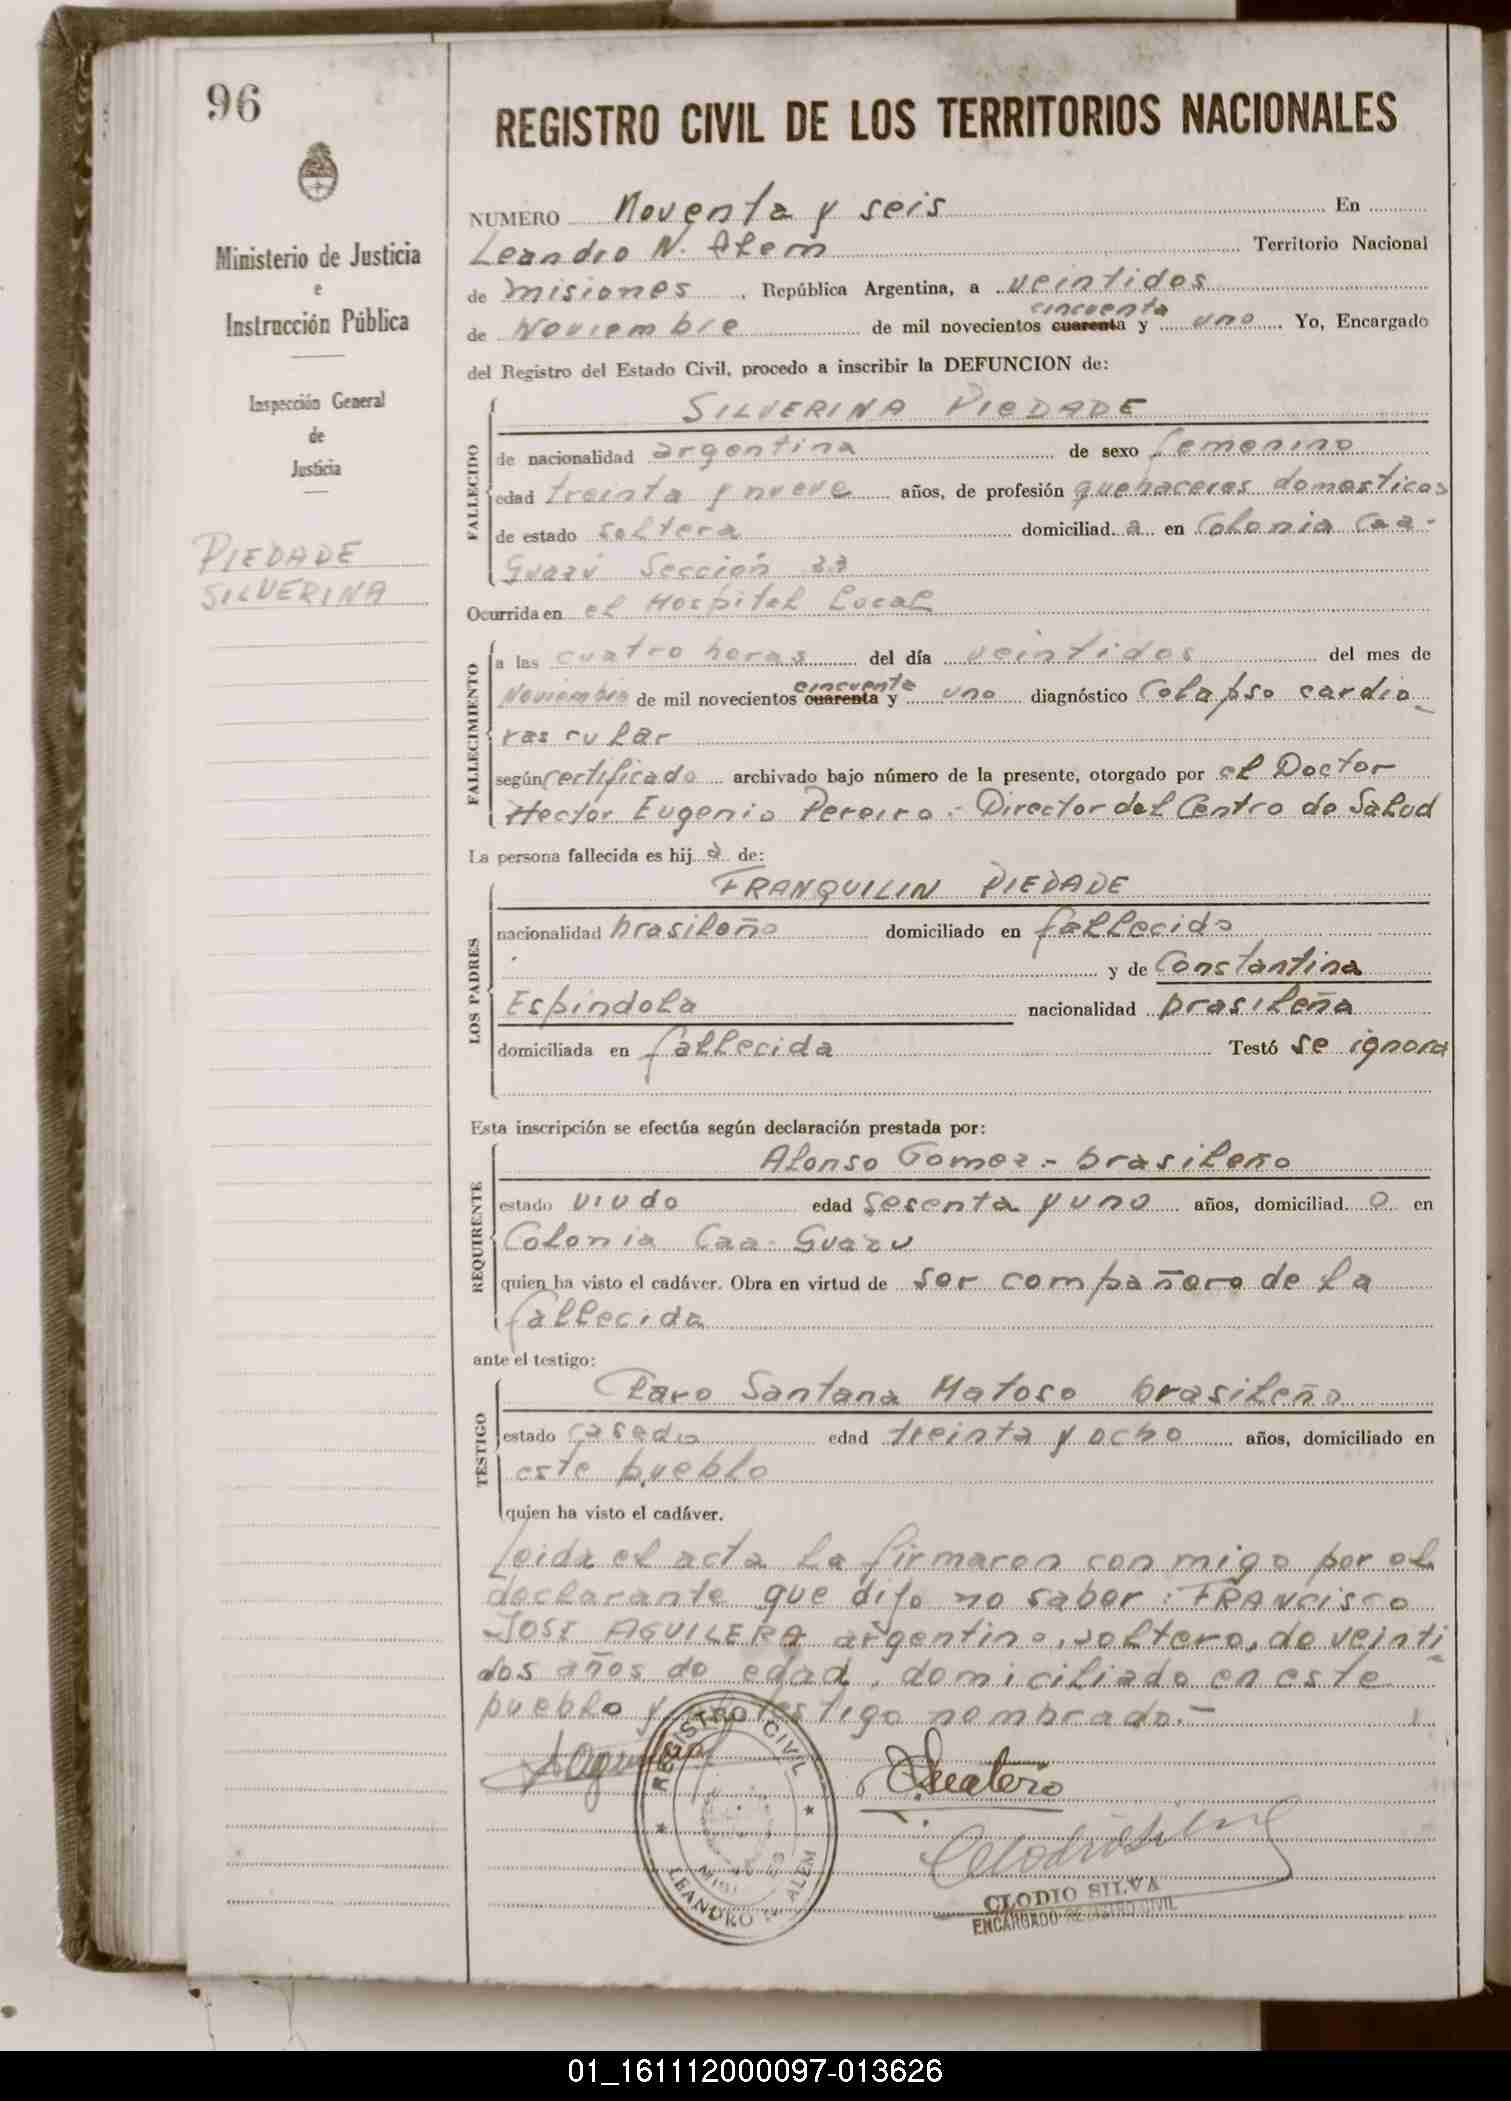 96
REGISTRO CIVIL DE LOS TERRITORIOS NACIONALES
Ministerio de Justicia
e
Instrucción Pública
Inspección General
de
Justicia
PIEDADE
SILVERINA
NUMERO Noventa y seis En
Leandro N. Alem Territorio Nacional
de Misiones, República Argentina, a veintidos
cincuenta
de Noviembre de mil novecientos cuarenta y uno Yo, Encargado
del Registro del Estado Civil, procedo a inscribir la DEFUNCION de:
FALLECIDO
SILVERINA PIEDADE
de nacionalidad argentina de sexo femenino
edad treinta y nueve años, de profesión quehaceres domesticos
de estado soltera domiciliad a en Colonia Caa-
Guazú Sección 33
Ocurrida en el Hospital Local
FALLECIMIENTO
a las cuatro horas del día veintidos del mes de
cincuenta
Noviembre de mil novecientos cuarenta y uno diagnóstico Colapso cardio-
vascular
según certificado archivado bajo número de la presente, otorgado por el Doctor
Hector Eugenio Pereiro - Director del Centro de Salud
La persona fallecida es hij a de:
LOS PADRES
FRANQUILIN PIEDADE
nacionalidad brasileño domiciliado en fallecido
y de Constantina
Espindola nacionalidad brasileña
domiciliada en fallecida Testó se ignora
Esta inscripción se efectúa según declaración prestada por:
REQUIRENTE
Alonso Gomez - brasileño
estado viudo edad sesenta y uno años, domiciliad o en
Colonia Caa-Guazu
quien ha visto el cadáver. Obra en virtud de ser compañero de la
fallecida
ante el testigo:
TESTIGO
Claro Santana Matoso brasileño
estado casado edad treinta y ocho años, domiciliado en
este pueblo
quien ha visto el cadáver.
Leida el acta la firmaron conmigo por el
declarante que dijo no saber: FRANCISCO
JOSE AGUILERA argentino, soltero, de veinti-
dos años de edad, domiciliado en este
pueblo y el testigo nombrado.-
REGISTRO CIVIL
LEANDRO N. ALEM
CLODIO SILVA
ENCARGADO REGISTRO CIVIL
01_161112000097-013626